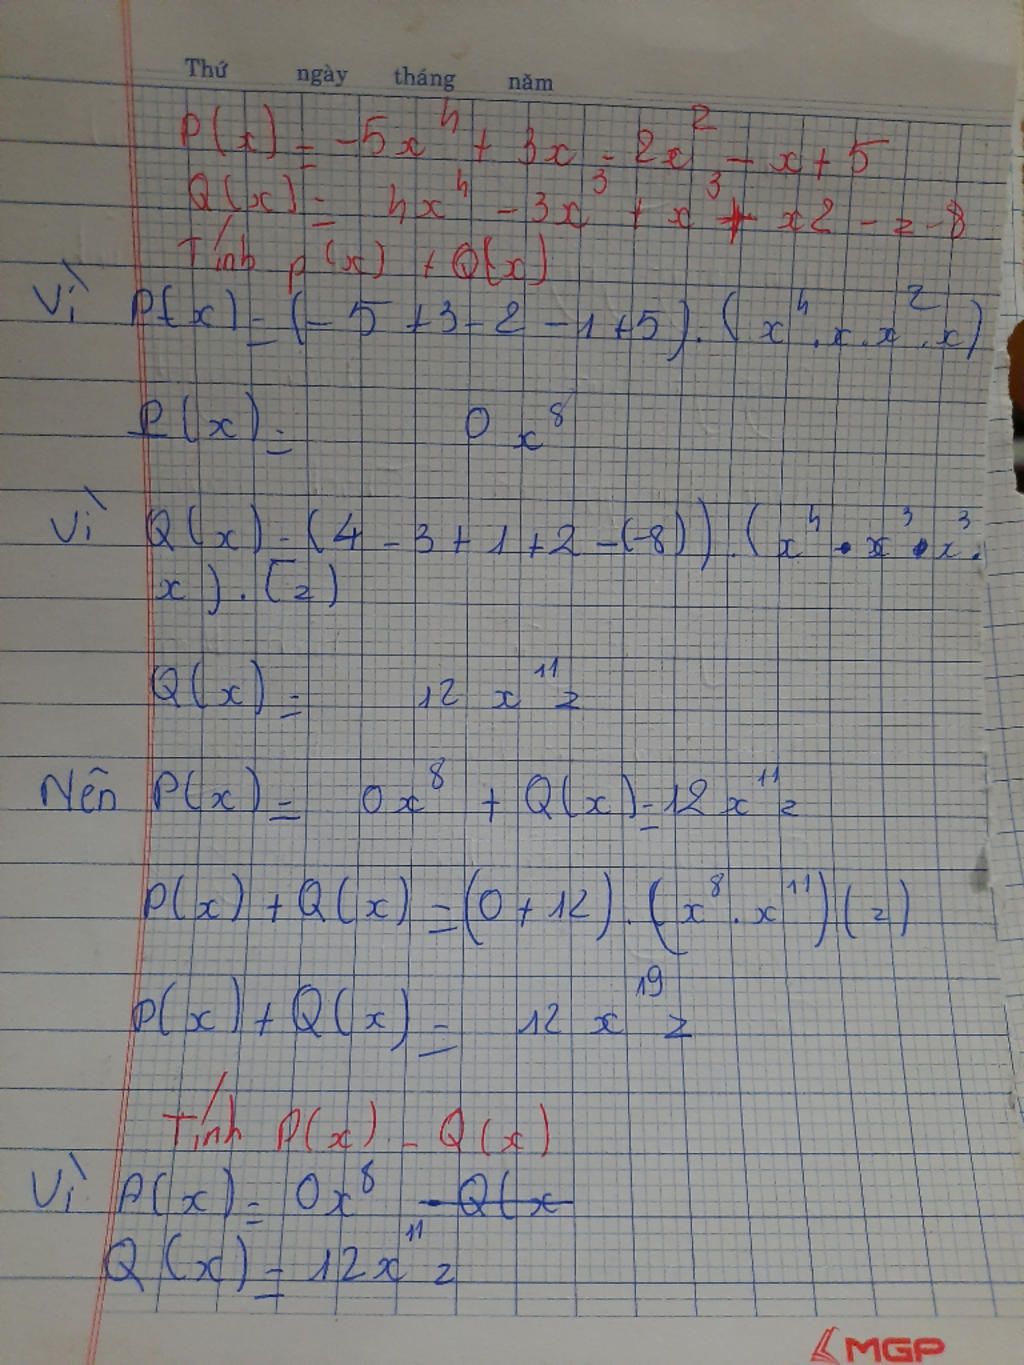 Thứ ngày tháng năm
P(x) = -5x⁴ + 3x - 2x² - x + 5
Q(x) = 4x⁴ - 3x³ + x³ + x2 - z - 8
Tính P(x) + Q(x)
Vì P(x) = (-5 + 3 - 2 - 1 + 5) . (x⁴ . x . x² . x)
P(x) = 0 x⁸
Vì Q(x) = (4 - 3 + 1 + 2 - (-8)) . (x⁴ . x³ . x³ .
x) . (z)
Q(x) = 12 x¹¹ z
Nên P(x) = 0x⁸ + Q(x) = 12x¹¹ z
P(x) + Q(x) = (0 + 12) . (x⁸ . x¹¹) (z)
P(x) + Q(x) = 12 x¹⁹ z
Tính P(x) - Q(x)
Vì P(x) = 0x⁸ - Q(x
Q(x) = 12x¹¹ z
MGP